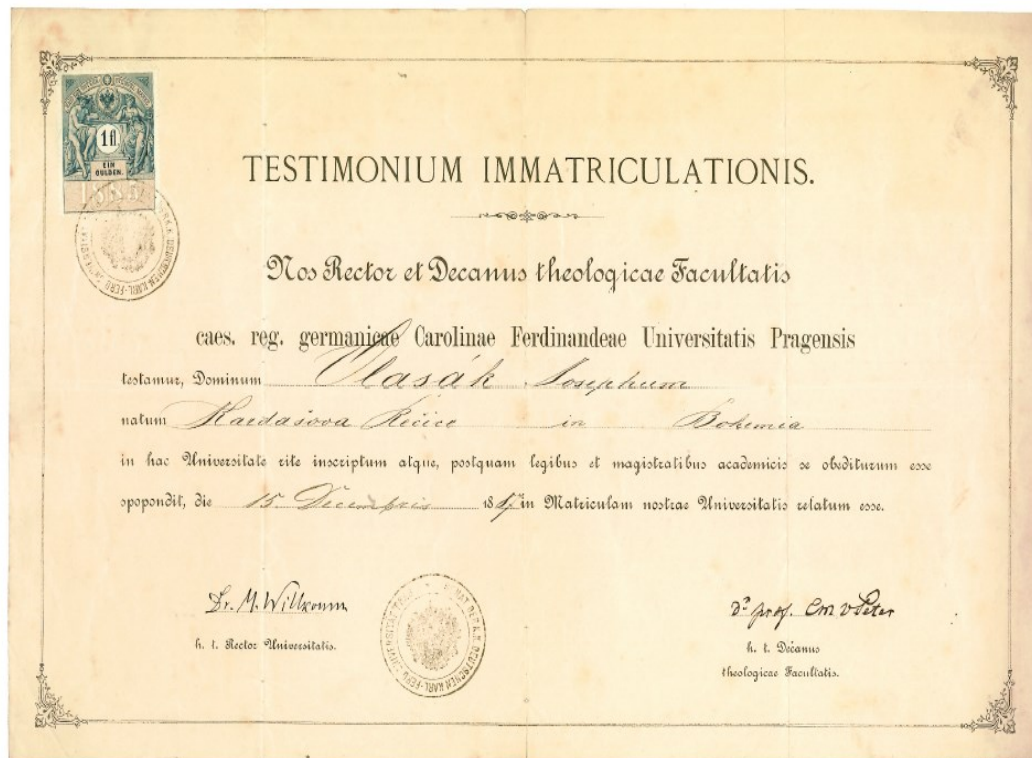 1 fl.
EIN
GULDEN.
TESTIMONIUM IMMATRICULATIONIS.
Nos Rector et Decanus theologicae Facultatis
caes. reg. germanicae Carolinae Ferdinandeae Universitatis Pragensis
testamur, Dominum Vlasák Josephum
natum Kardašova Řečice in Bohemia
in hac Universitate rite inscriptum atque, postquam legibus et magistratibus academicis se obediturum esse
spopondit, die 15. Decembris 188 in Matriculam nostrae Universitatis relatum esse.
Dr. M. Willkomm
h. t. Rector Universitatis.
Dr. prof.
h. t. Decanus
theologicae Facultatis.
DEUTSCHEN KARL-FERD. UNIVERSITÄT